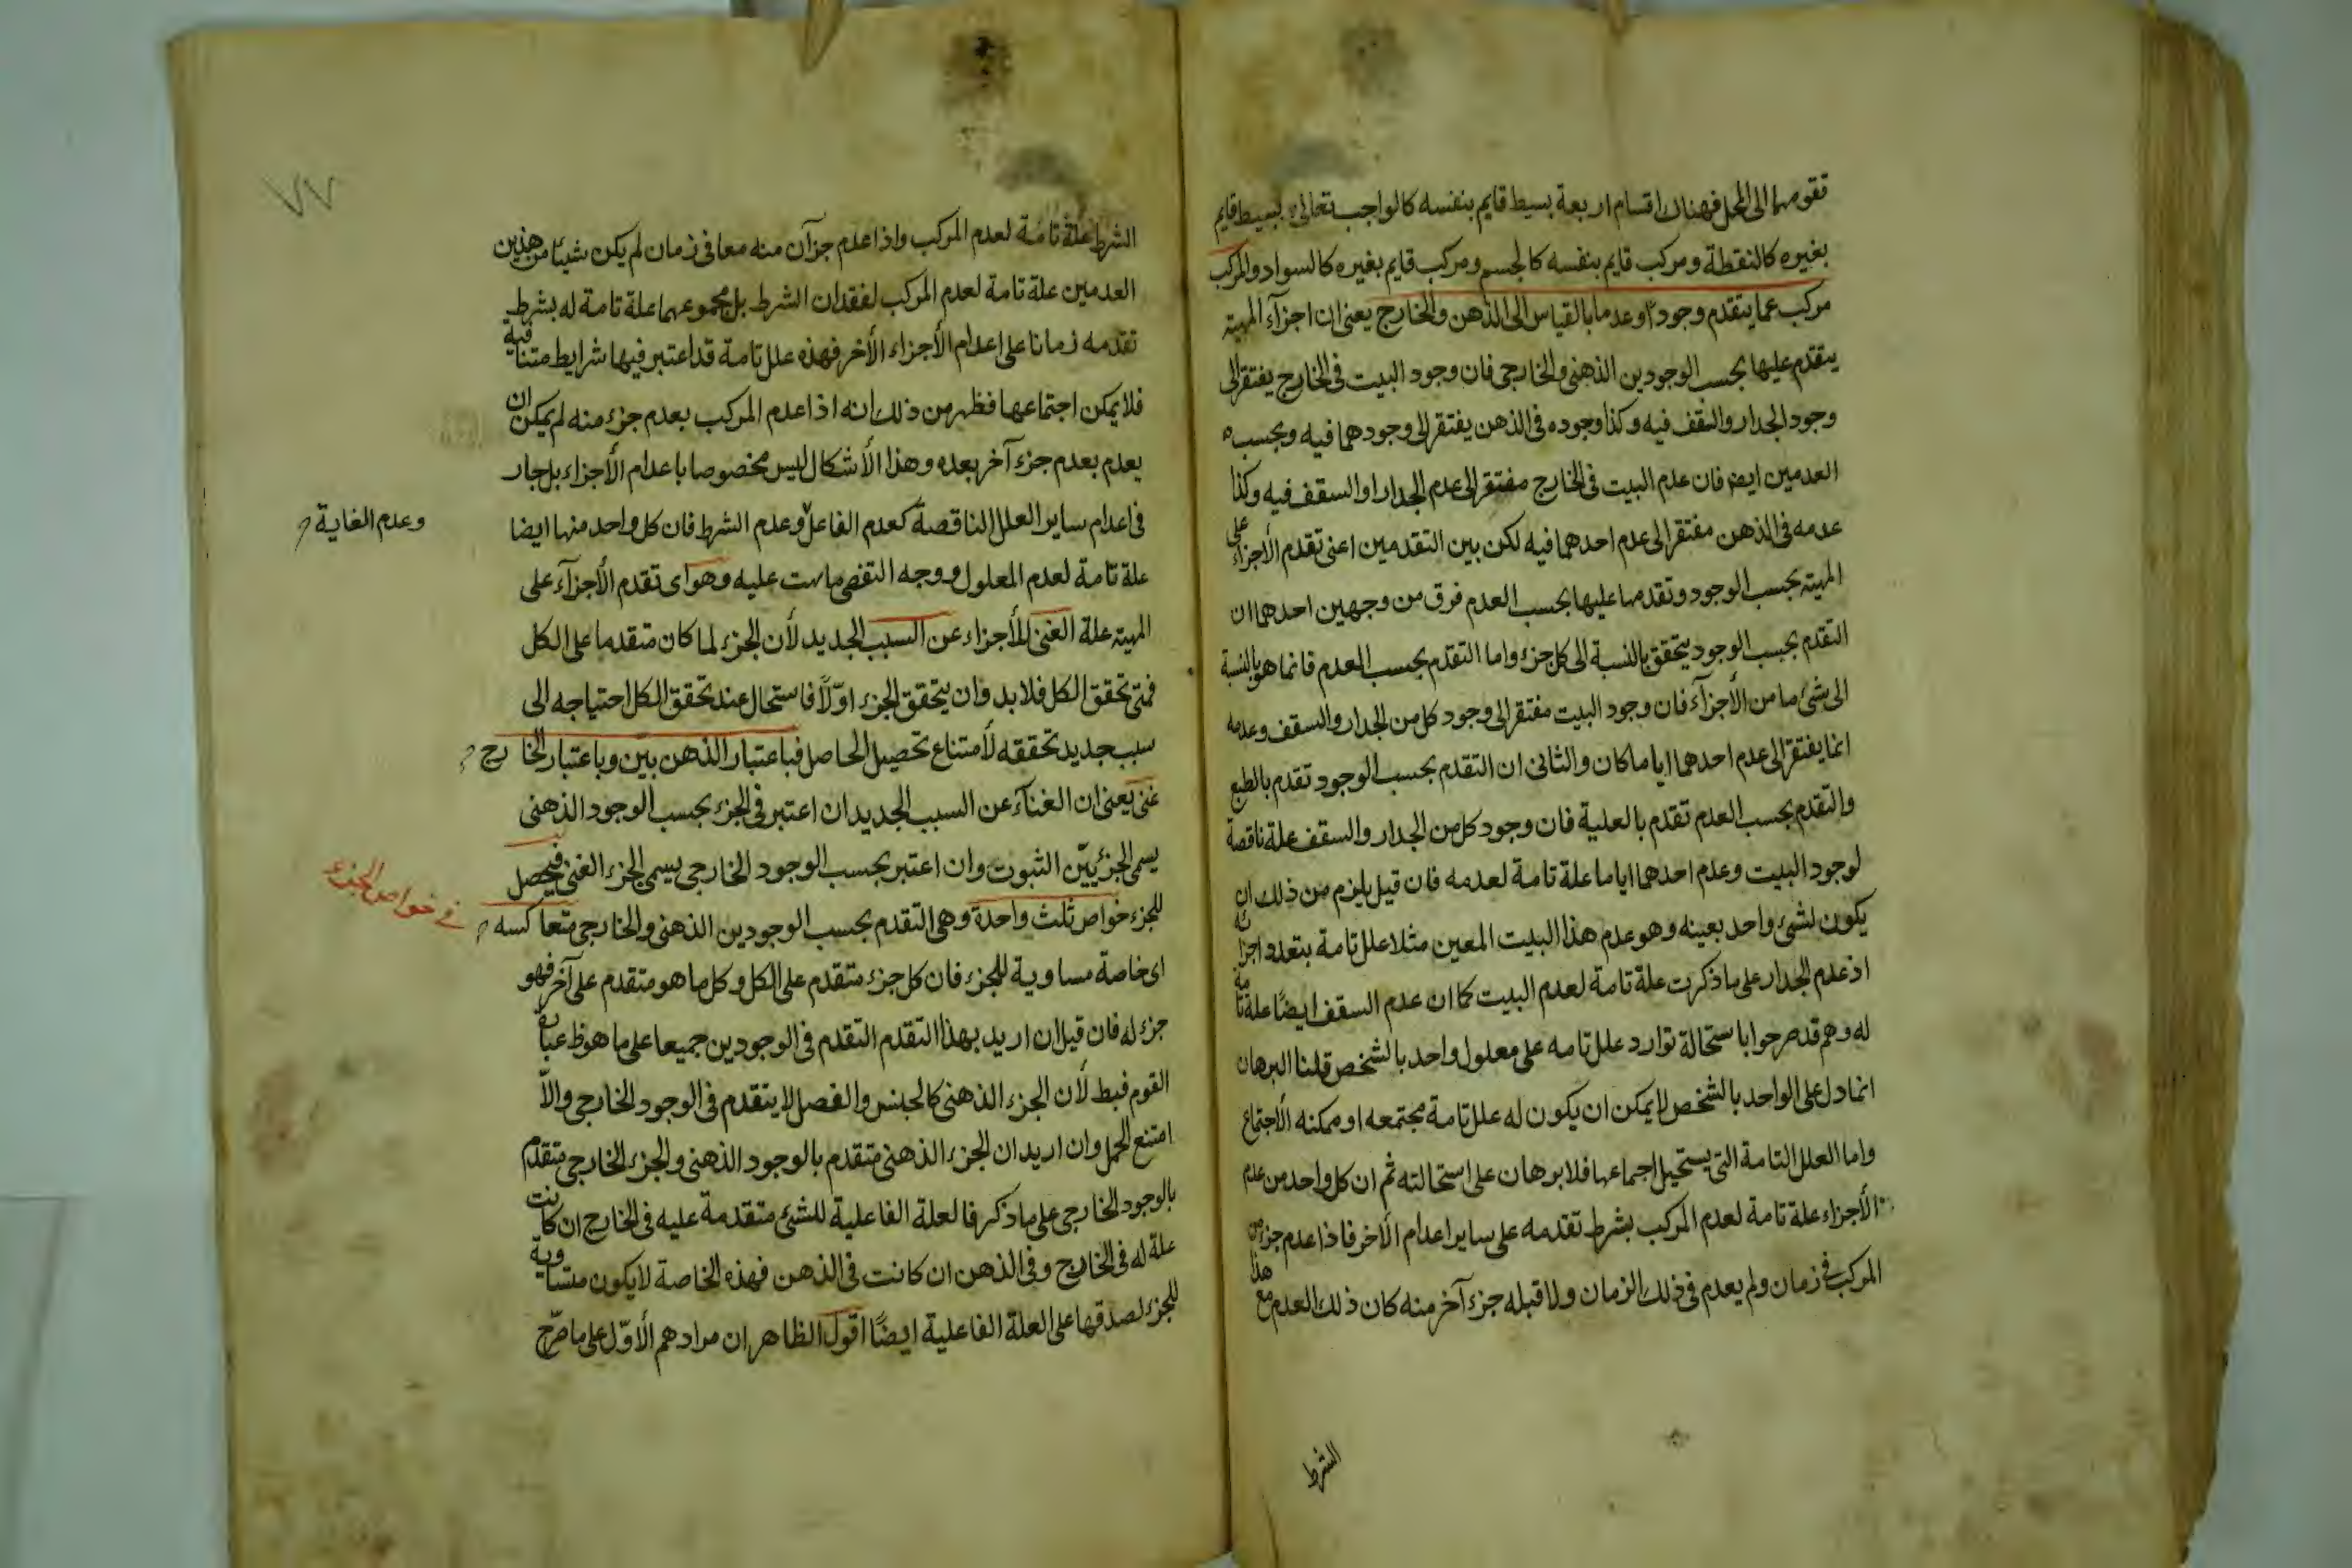 تقومهما الى المحل فهناك اقسام اربعة بسيط قايم بنفسه كالواجب تعالى بسيط قايم
بغيره كالنقطة ومركب قايم بنفسه كالجسم ومركب قايم بغيره كالسواد والمركب
مركب عما يتقدم وجودا وعدما بالقياس الى الذهن والخارج يعنى ان اجزآء المهية
يتقدم عليها بحسب الوجودين الذهنى والخارجى فان وجود البيت فى الخارج يفتقر الى
وجود الجدار والسقف فيه وكذا وجوده فى الذهن يفتقر الى وجودهما فيه وبحسب
العدمين ايضا فان عدم البيت فى الخارج مفتقر الى عدم الجدار او السقف فيه وكذا
عدمه فى الذهن مفتقر الى عدم احدهما فيه لكن بين التقدمين اعنى تقدم الأجزاء على
المهية بحسب الوجود وتقدمها عليها بحسب العدم فرق من وجهين احدهما ان
التقدم بحسب الوجود يتحقق بالنسبة الى كل جزء واما التقدم بحسب العدم فانما هو بالنسبة
الى شئ ما من الأجزآء فان وجود البيت مفتقر الى وجود كل من الجدار والسقف وعدمه
انما يفتقر الى عدم احدهما اياما كان والثانى ان التقدم بحسب الوجود تقدم بالطبع
والتقدم بحسب العدم تقدم بالعلية فان وجود كل من الجدار والسقف علة ناقصة
لوجود البيت وعدم احدهما اياما علة تامة لعدمه فان قيل يلزم من ذلك ان
يكون لشئ واحد بعينه وهو عدم هذا البيت المعين مثلا علل تامة بتعدد اجزائه
اذ عدم الجدار على ما ذكرت علة تامة لعدم البيت كما ان عدم السقف ايضًا علة تامة
له وهم قد صرحوا باستحالة توارد علل تامه على معلول واحد بالشخص قلنا البرهان
انما دل على الواحد بالشخص لا يمكن ان يكون له علل تامة مجتمعه او ممكنه الأجتماع
واما العلل التامة التى يستحيل اجتماعها فلا برهان على استحالته ثم ان كل واحد من عدم
الأجزاء علة تامة لعدم المركب بشرط تقدمه على ساير اعدام الأخر فاذا عدم جزء من
المركب فى زمان ولم يعدم فى ذلك الزمان ولا قبله جزء آخر منه كان ذلك العدم مع هذا
الشرط
٧٧
الشرط علة تامة لعدم المركب واذا عدم جزآن منه معا فى زمان لم يكن شيئا من هذين
العدمين علة تامة لعدم المركب لفقدان الشرط بل مجموعهما علة تامة له بشرط
تقدمه زمانا على اعدام الأجزاء الأخر فهذه علل تامة قد اعتبر فيها شرايط متنافية
فلا يمكن اجتماعها فظهر من ذلك انه اذا عدم المركب بعدم جزء منه لم يمكن ان
يعدم بعدم جزء آخر بعده وهذا الأشكال ليس مخصوصا باعدام الأجزاء بل جار
فى اعدام ساير العلل الناقصة كعدم الفاعل وعدم الشرط فان كل واحد منها ايضا
وعدم الغاية
علة تامة لعدم المعلول ووجه التفصى ما نبهت عليه وهو اى تقدم الأجزآء على
المهية علة الغنى للأجزاء عن السبب الجديد لأن الجزء لما كان متقدما على الكل
فمتى تحقق الكل فلا بد وان يتحقق الجزء اوّلًا فاستحال عند تحقق الكل احتياجه الى
سبب جديد تحققه لأمتناع تحصيل الحاصل فباعتبار الذهن بيّن وباعتبار الخارج
غنى يعنى ان الغنآء عن السبب الجديد ان اعتبر فى الجزء بحسب الوجود الذهنى
يسمى الجزء بيّن الثبوت وان اعتبر بحسب الوجود الخارجى يسمى الجزء الغنى فيحصل
فى خواص الجزء
للجزء خواص ثلث واحدة وهى التقدم بحسب الوجودين الذهنى والخارجى متعاكسه
اى خاصة مساوية للجزء فان كل جزء متقدم على الكل وكل ما هو متقدم على آخر فهو
جزء له فان قيل ان اريد بهذا التقدم التقدم فى الوجودين جميعا على ما هو ظ عبارة
القوم فبط لأن الجزء الذهنى كالجنس والفصل لا يتقدم فى الوجود الخارجى والّا
امتنع الحمل وان اريد ان الجزء الذهنى متقدم بالوجود الذهنى والجزء الخارجى متقدم
بالوجود الخارجى على ما ذكر فالعلة الفاعلية للشئ متقدمة عليه فى الخارج ان كانت
علة له فى الخارج وفى الذهن ان كانت فى الذهن فهذه الخاصة لا يكون متساوية
للجزء لصدقها على العلة الفاعلية ايضًا اقول الظاهر ان مرادهم الأوّل على ما صرّح